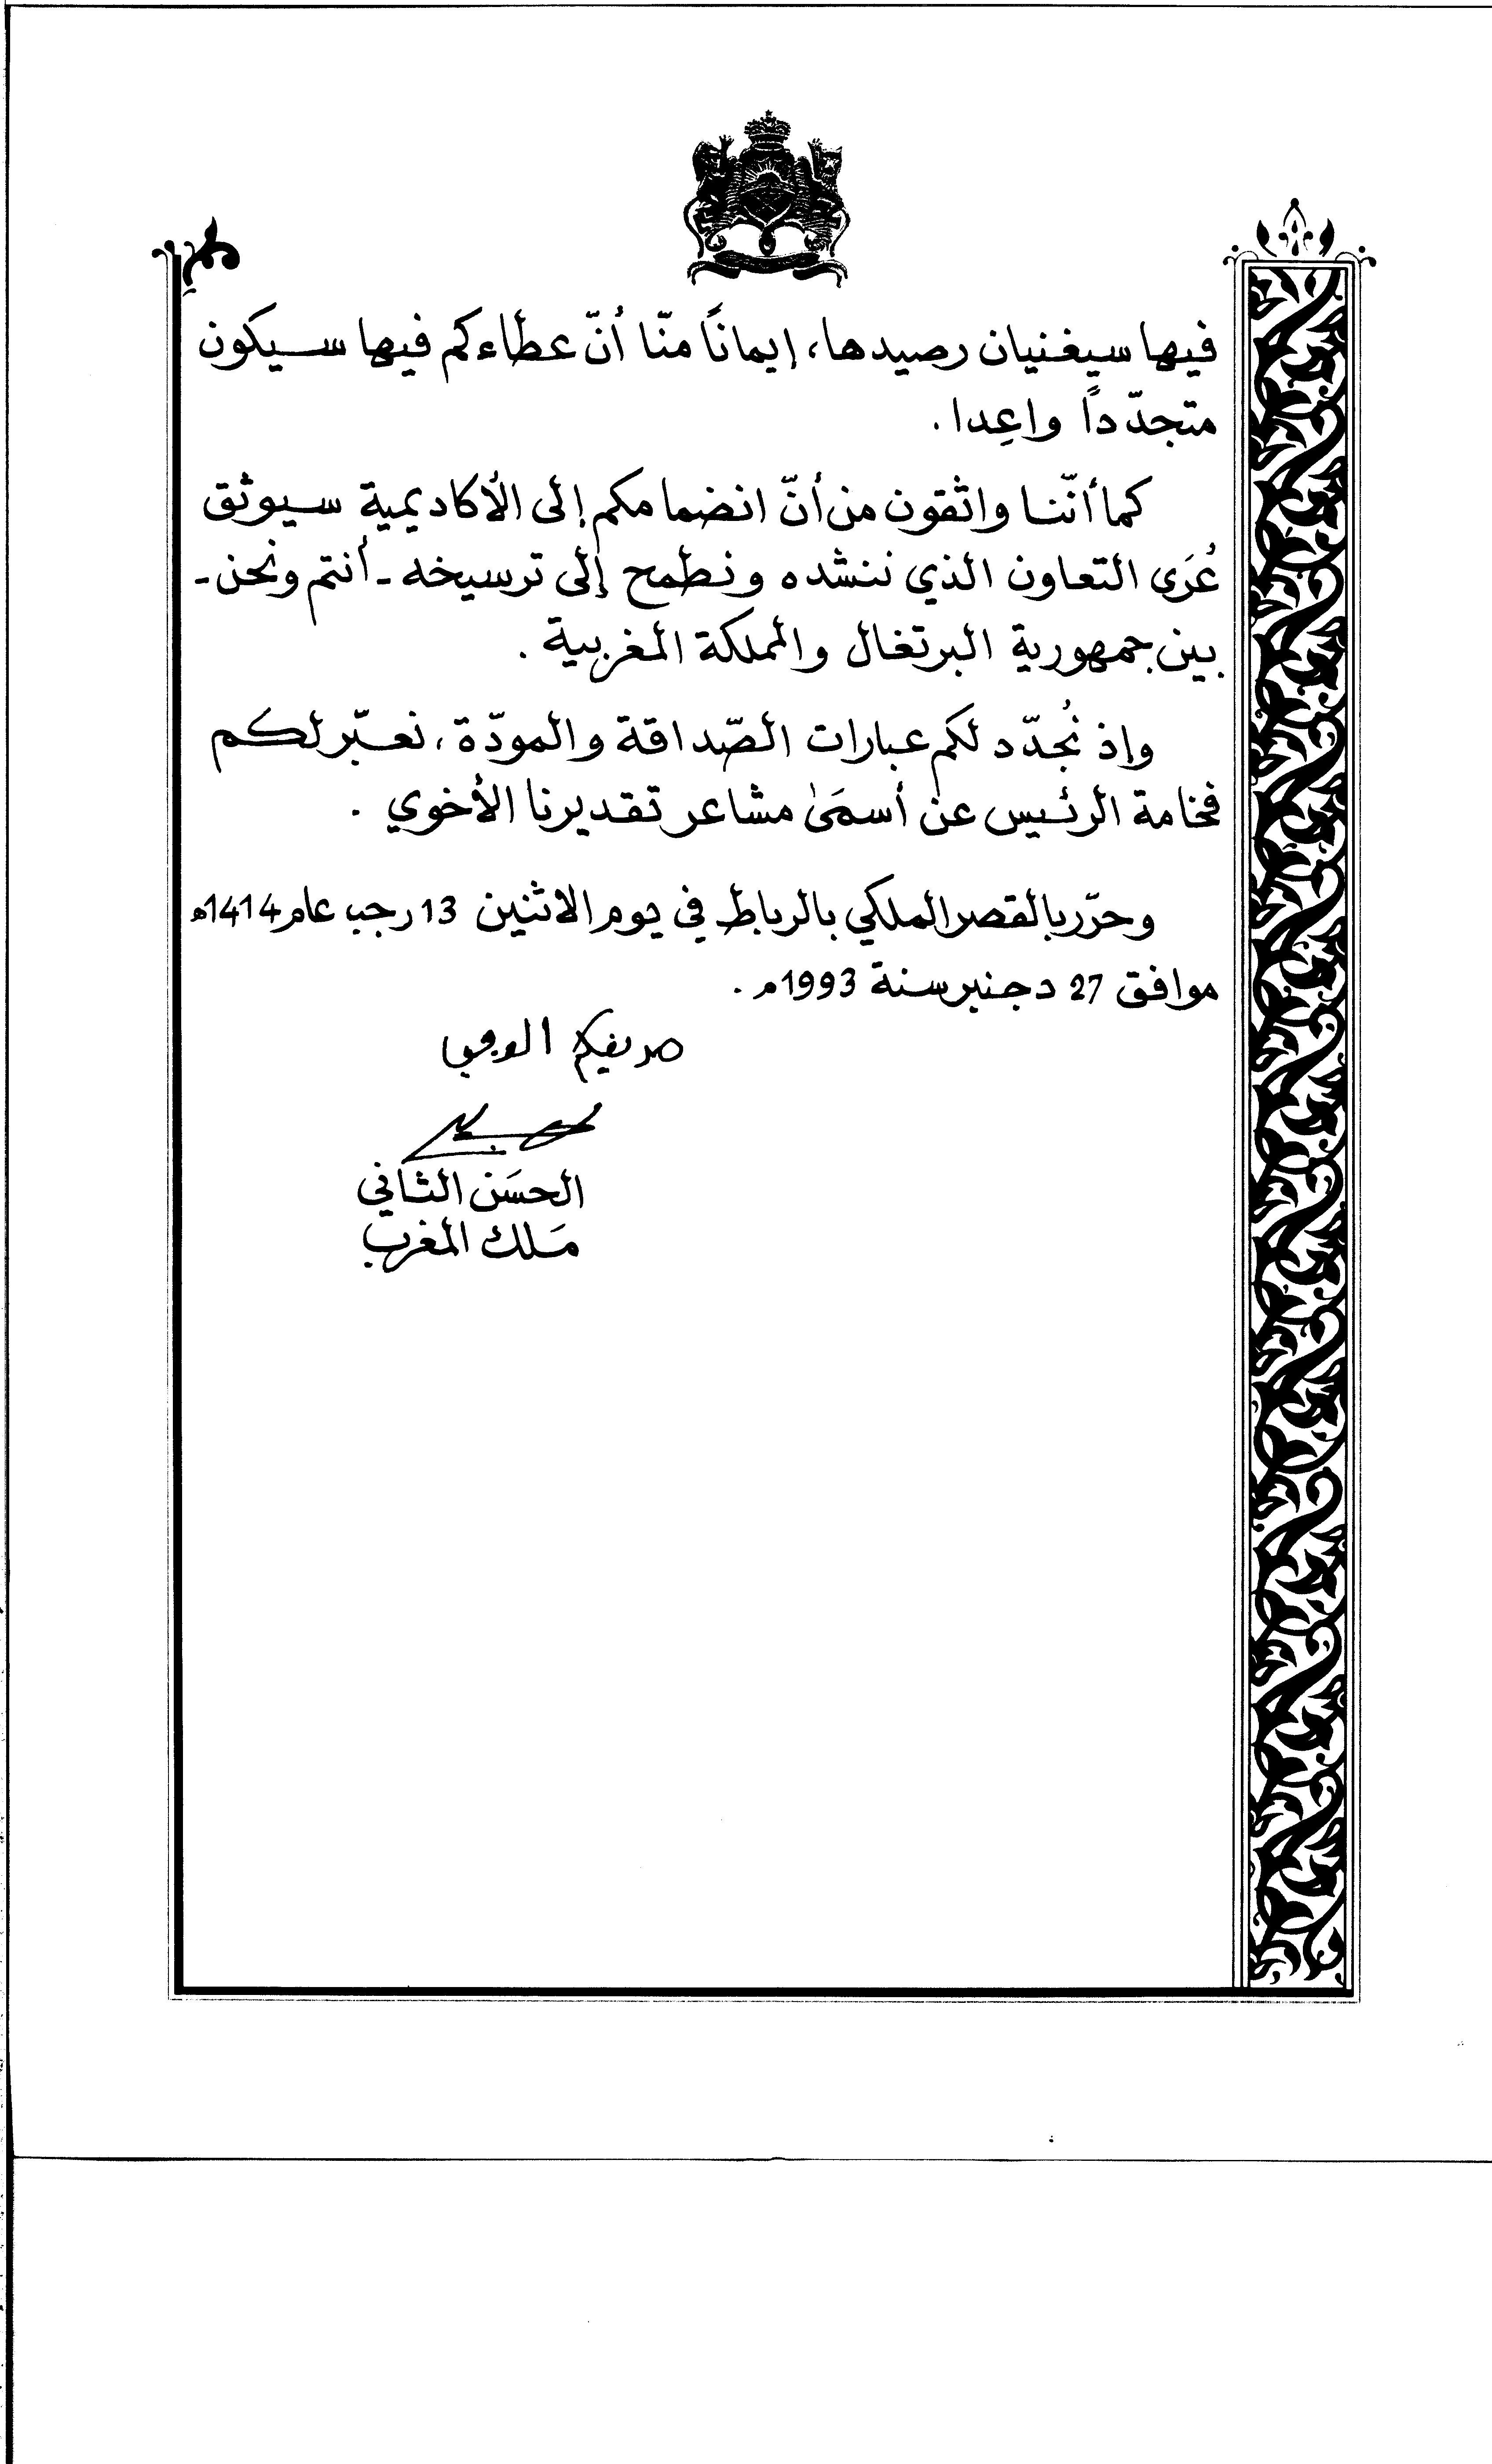 فيها سيغنيان رصيدها، إيمانًا منّا أنّ عطاءكم فيها سيكون
متجدّدًا واعِدا .
كما أنّنا واثقون من أنّ انضمامكم إلى الأكاديمية سيوثق
عُرَى التعاون الذي ننشده ونطمح إلى ترسيخه - أنتم ونحن -
بين جمهورية البرتغال والمملكة المغربية .
وإذ نُجدّد لكم عبارات الصّداقة والمودّة، نعبّر لكم
فخامة الرئيس عن أسمَى مشاعر تقديرنا الأخوي .
وحرّر بالقصر الملكي بالرباط في يوم الاثنين 13 رجب عام 1414ه
موافق 27 دجنبر سنة 1993م .
صديقكم الوفي
الحسَن الثاني
مَلك المغرب